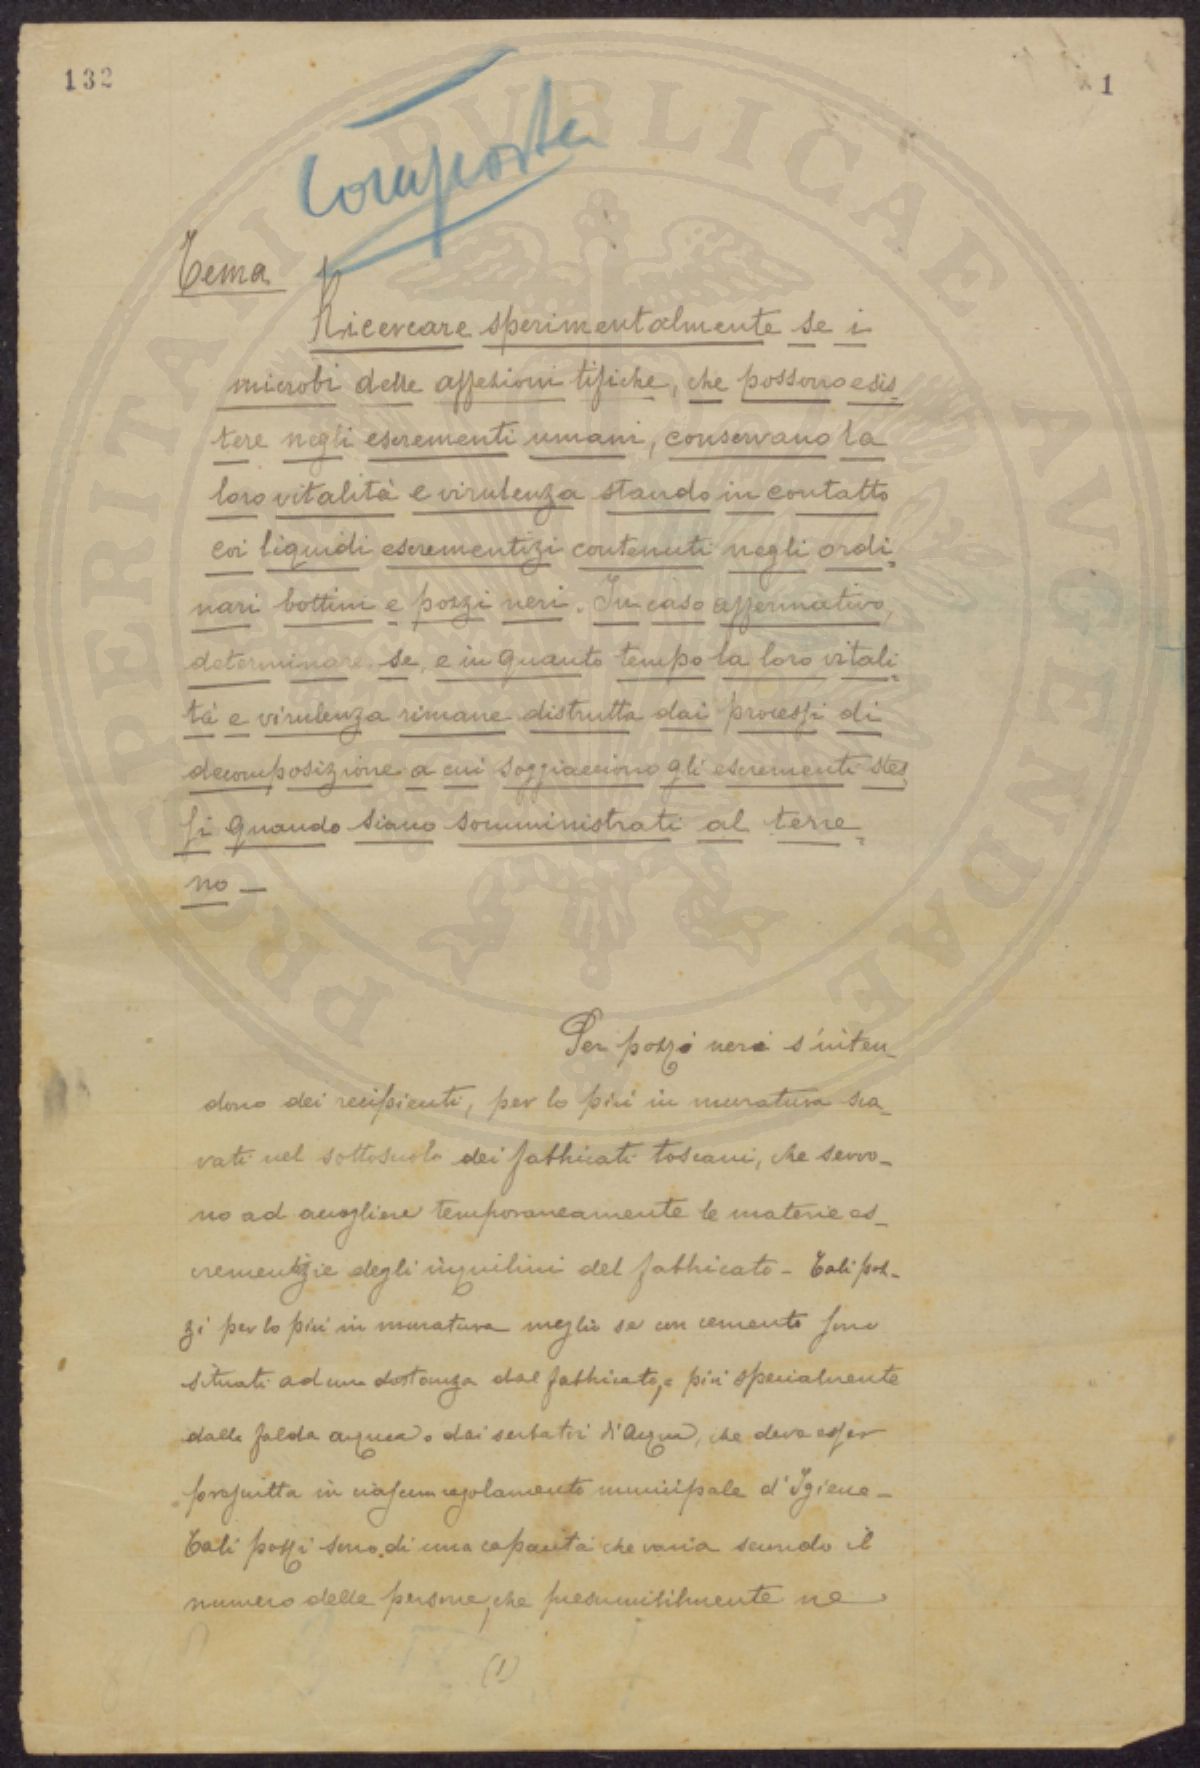 132
1
Composta
Tema
Ricercare sperimentalmente se i
microbi delle affezioni tifiche, che possono esis
tere negli escrementi umani, conservano la
loro vitalità e virulenza stando in contatto
coi liquidi escrementizi contenuti negli ordi
nari bottini e pozzi neri. In caso affermativo,
determinare se, e in quanto tempo la loro vitali
tà e virulenza rimane distrutta dai processi di
decomposizione a cui soggiacciono gli escrementi stes
si quando siano somministrati al terre
no —
Per pozzi neri s'inten_
dono dei recipienti, per lo più in muratura sca_
vati nel sottosuolo dei fabbricati toscani, che servo_
no ad accogliere temporaneamente le materie es_
crementizie degli inquilini del fabbricato - Tali poz_
zi per lo più in muratura meglio se con cemento sono
situati ad una distanza dal fabbricato, e più specialmente
dalla falda acquea o dai serbatoi d'acqua, che deve esser
prescritta in ciascun regolamento municipale d'Igiene -
Tali pozzi sono di una capacità che varia secondo il
numero delle persone, che presumibilmente ne
(1)
PROSPERITATI PVBLICAE AVGENDAE